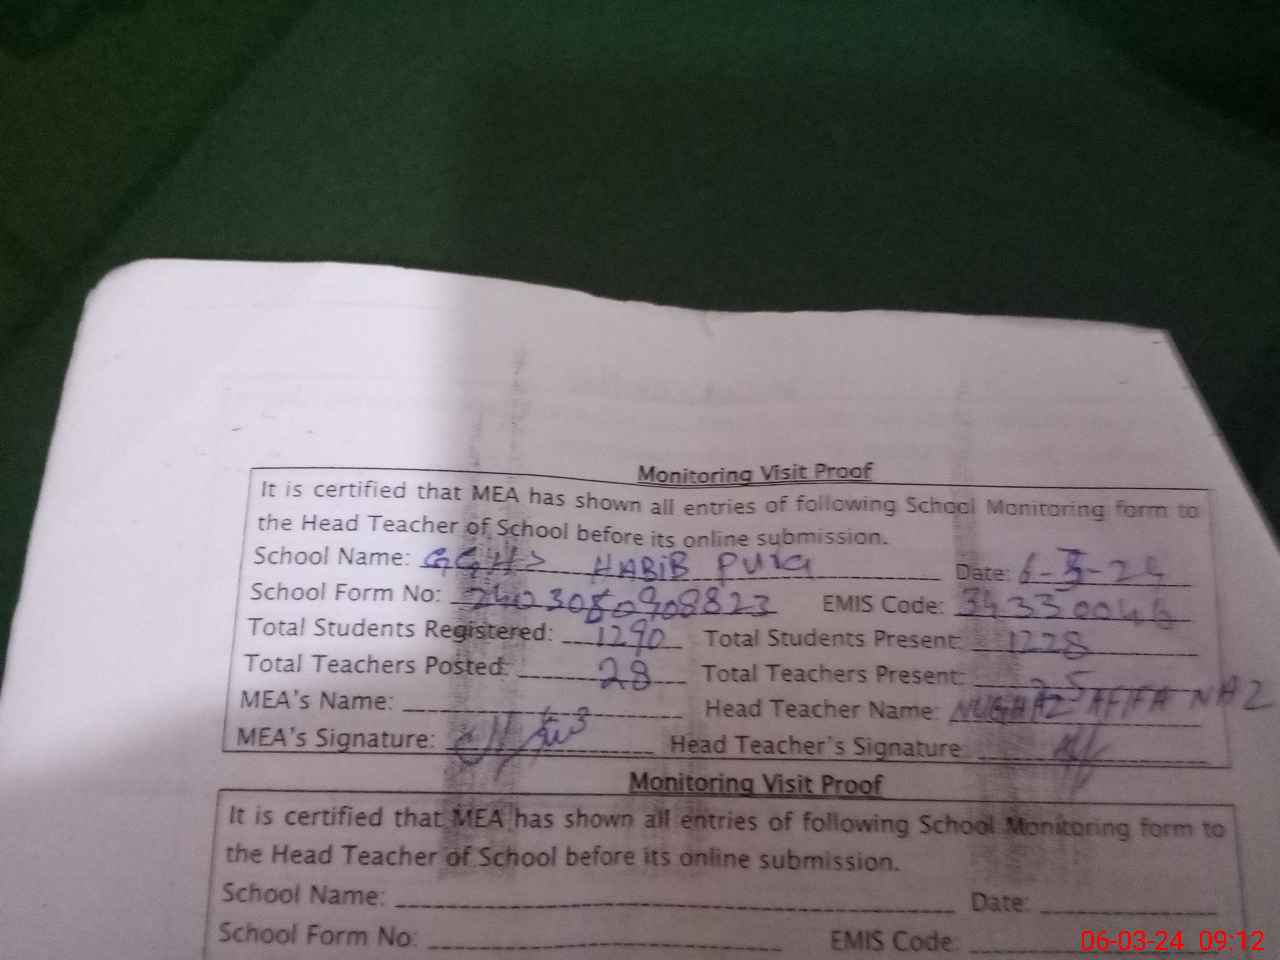 Monitoring Visit Proof
It is certified that MEA has shown all entries of following School Monitoring form to
the Head Teacher of School before its online submission.
School Name: GGHS HABIB PURA Date: 6-3-24
School Form No: 2403080908823 EMIS Code: 34330046
Total Students Registered: 1290 Total Students Present: 1228
Total Teachers Posted: 28 Total Teachers Present: 25
MEA's Name: Head Teacher Name: NAZ
MEA's Signature: Head Teacher's Signature:
Monitoring Visit Proof
It is certified that MEA has shown all entries of following School Monitoring form to
the Head Teacher of School before its online submission.
School Name: Date:
School Form No: EMIS Code:
06-03-24 09:12